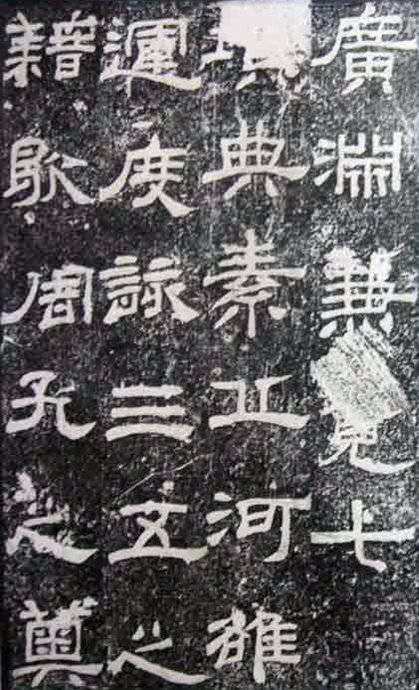 廣淵兼覽七
墳典素丘河雒
運度詠三五之
籍耽周孔之奧